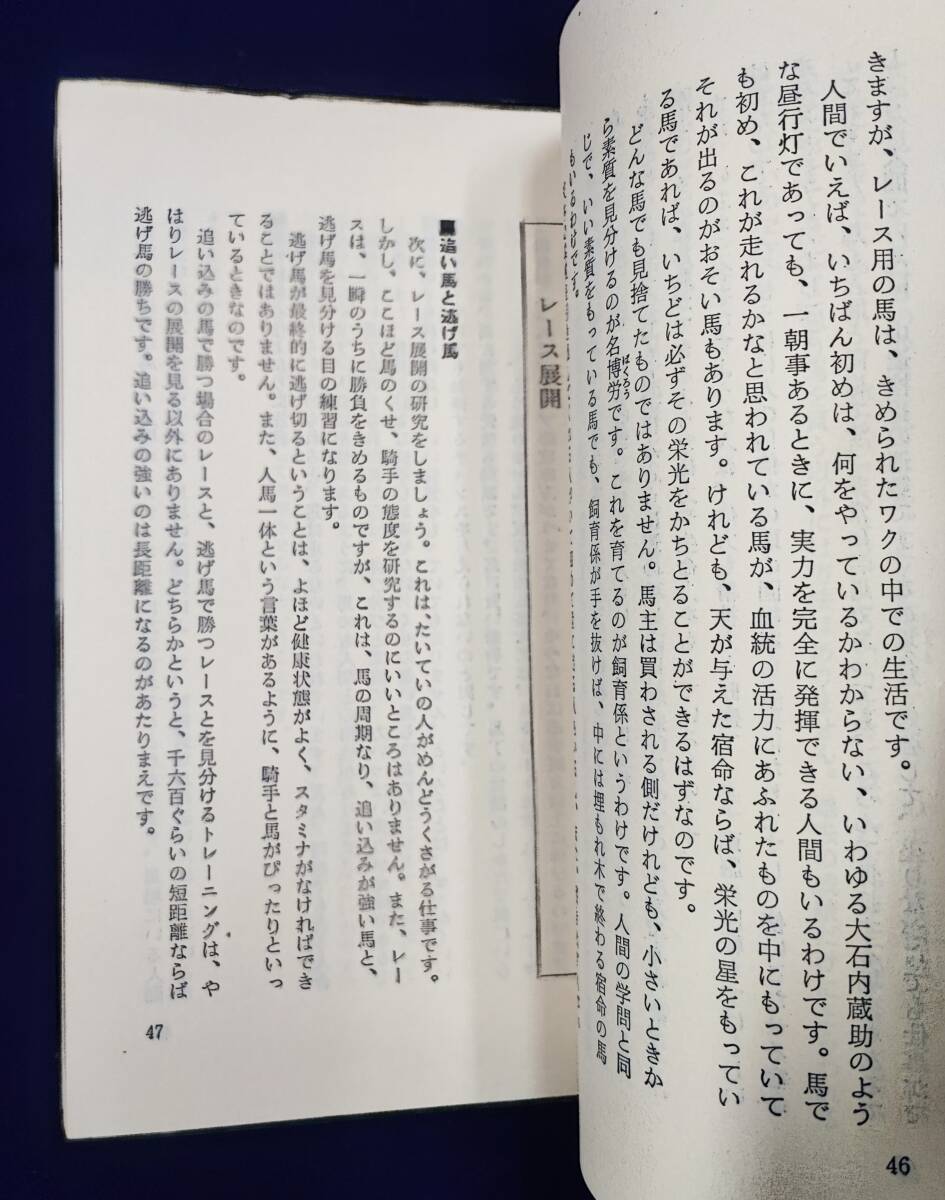 きますが、レース用の馬は、きめられたワクの中での生活です。
人間でいえば、いちばん初めは、何をやっているかわからない、いわゆる大石内蔵助のよう
な昼行灯であっても、一朝事あるときに、実力を完全に発揮できる人間もいるわけです。馬で
も初め、これが走れるかなと思われている馬が、血統の活力にあふれたものを中にもっていて
それが出るのがおそい馬もあります。けれども、天が与えた宿命ならば、栄光の星をもってい
る馬であれば、いちどは必ずその栄光をかちとることができるはずなのです。
どんな馬でも見捨てたものではありません。馬主は買わされる側だけれども、小さいときか
ら素質を見分けるのが名博労です。これを育てるのが飼育係というわけです。人間の学問と同
ばくろう
じで、いい素質をもっている馬でも、飼育係が手を抜けば、中には埋もれ木で終わる宿命の馬
もいるわけです。
46
レース展開
■追い馬と逃げ馬
次に、レース展開の研究をしましょう。これは、たいていの人がめんどうくさがる仕事です。
しかし、ここほど馬のくせ、騎手の態度を研究するのにいいところはありません。また、レー
スは、一瞬のうちに勝負をきめるものですが、これは、馬の周期なり、追い込みが強い馬と、
逃げ馬を見分ける目の練習になります。
逃げ馬が最終的に逃げ切るということは、よほど健康状態がよく、スタミナがなければでき
ることではありません。また、人馬一体という言葉があるように、騎手と馬がぴったりといっ
ているときなのです。
追い込みの馬で勝つ場合のレースと、逃げ馬で勝つレースとを見分けるトレーニングは、や
はりレースの展開を見る以外にありません。どちらかというと、千六百ぐらいの短距離ならば
逃げ馬の勝ちです。追い込みの強いのは長距離になるのがあたりまえです。
47